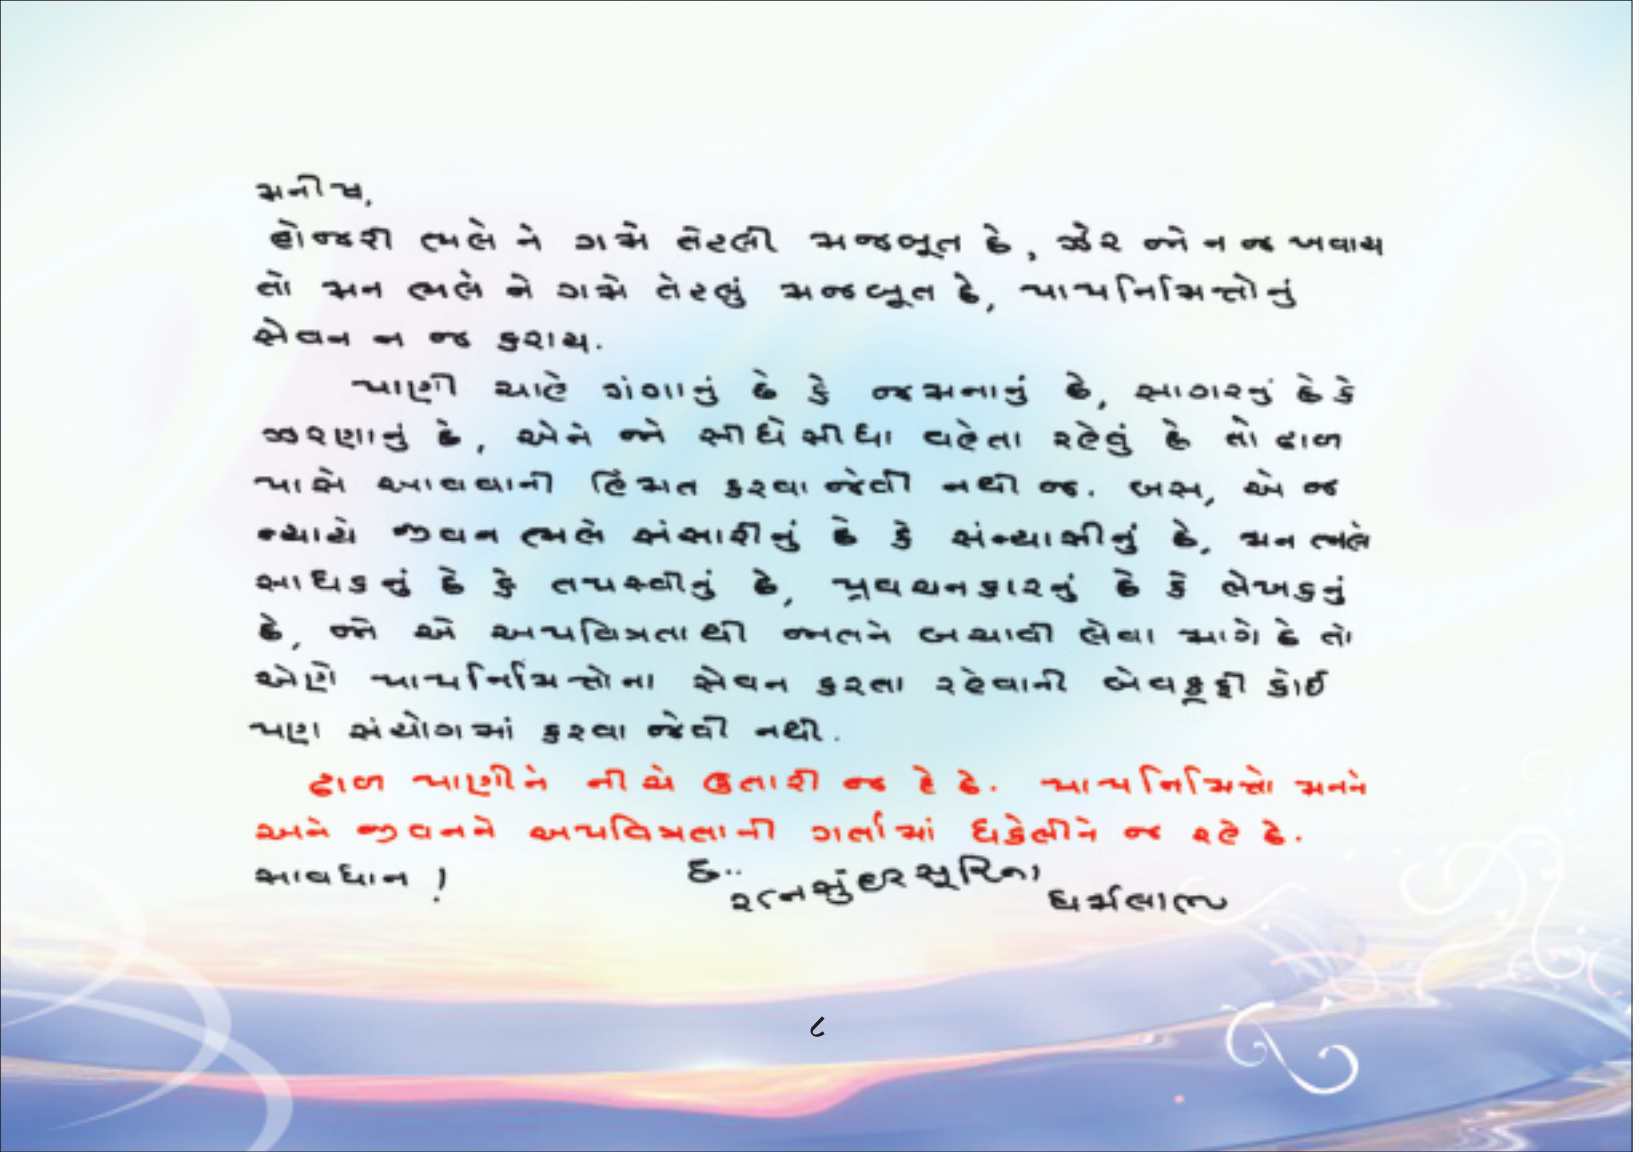 મનીષ,
હોજરી ભલે ને ગમે તેટલી મજબૂત છે, ઝેર જો ન જ ખવાય
તો મન ભલે ને ગમે તેટલું મજબૂત છે, પાપનિમિત્તોનું
સેવન ન જ કરાય.
પાણી ચાહે ગંગાનું છે કે જમનાનું છે, સાગરનું છે કે
ઝરણાનું છે, એને જો સીધેસીધા વહેતા રહેવું છે તો ઢાળ
પાસે આવવાની હિંમત કરવા જેવી નથી જ. બસ, એ જ
ન્યાયે જીવન ભલે સંસારીનું છે કે સંન્યાસીનું છે, મન ભલે
સાધકનું છે કે તપસ્વીનું છે, પ્રવચનકારનું છે કે લેખકનું
છે, જો એ અપવિત્રતાથી જાતને બચાવી લેવા માગે છે તો
એણે પાપનિમિત્તોના સેવન કરતા રહેવાની બેવકૂફી કોઈ
પણ સંયોગમાં કરવા જેવી નથી.
ઢાળ પાણીને નીચે ઉતારી જ દે છે. પાપનિમિત્તો મનને
અને જીવનને અપવિત્રતાની ગર્તામાં ધકેલીને જ રહે છે.
સાવધાન ! દ..
રત્નસુંદરસૂરિના ધર્મલાભ
૮